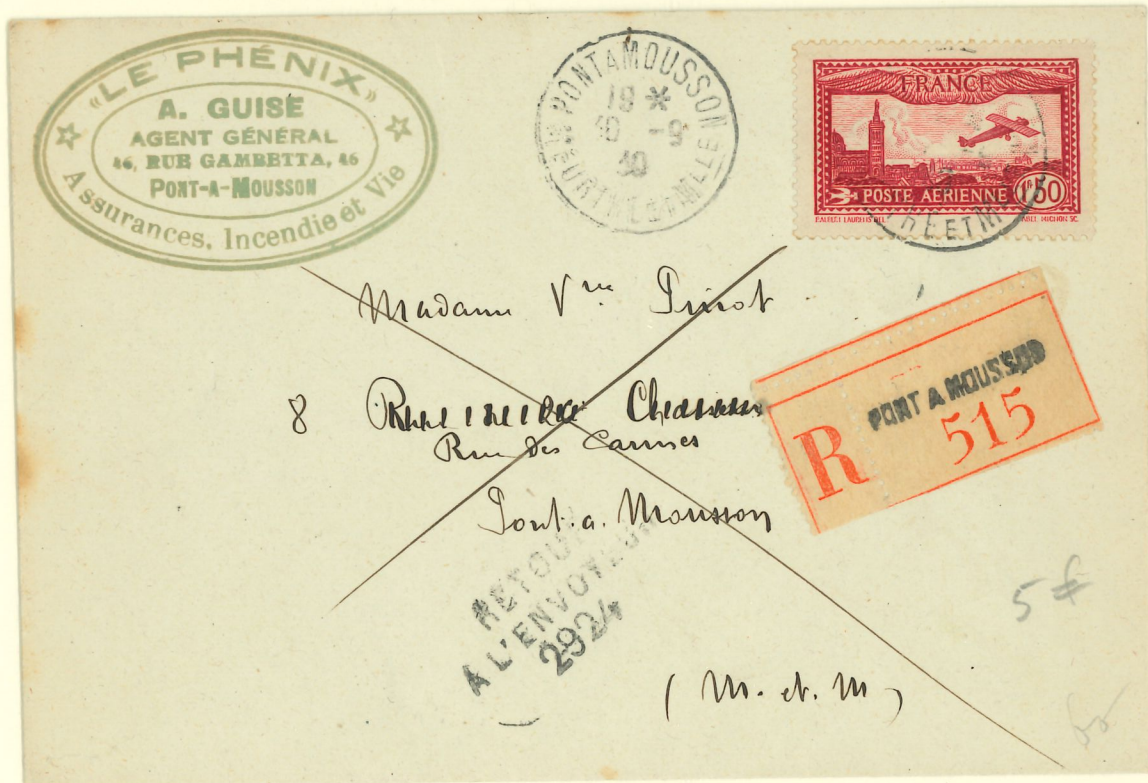 «LE PHÉNIX»
A. GUISE
AGENT GÉNÉRAL
46, RUE GAMBETTA, 46
PONT-A-MOUSSON
Assurances, Incendie et Vie
PONT A MOUSSON
19 *
10 -9
30
MEURTHE ET MLLE
FRANCE
POSTE AÉRIENNE 1F50
HE ET M
Madame Vve Pinot
8
Rue des Carmes
Pont-a-Mousson
(M. et. M)
R PONT A MOUSSON
515
RETOUR
A L'ENVOYEUR
2924
5 F